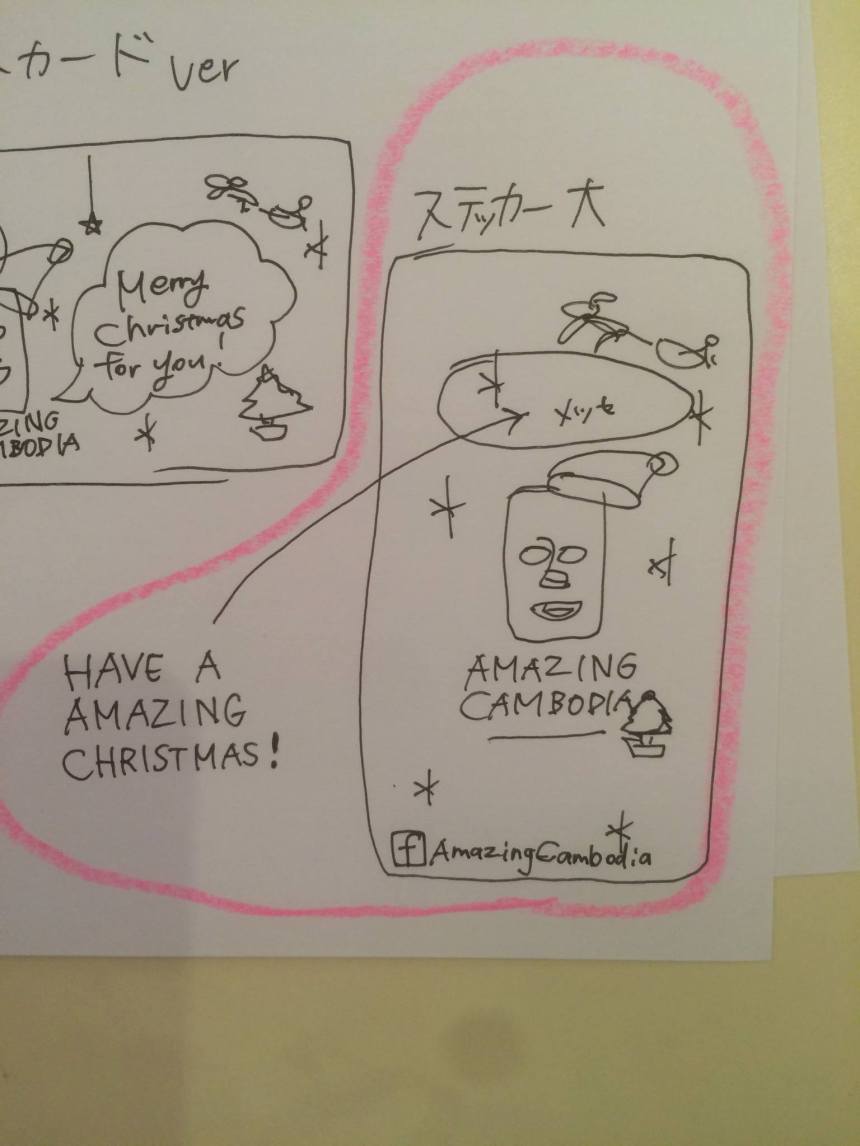 スカードver
Merry
Christmas
for you!
AZING
MBODIA
ステッカー大
メッセ
HAVE A
AMAZING
CHRISTMAS!
AMAZING
CAMBODIA
f AmazingCambodia